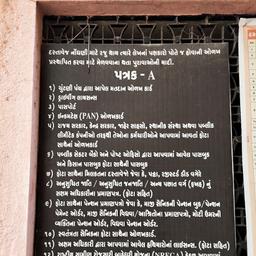 દસ્તાવેજ નોંધણી માટે રજૂ થાય ત્યારે લેખનાં પક્ષકારો પોતે જ હોવાની ઓળખ
પ્રસ્થાપિત કરવા માટે મેળવવાના થતા પુરાવાઓની યાદી.
પત્રક - A
૧) ચુંટણી પંચ દ્વારા આપેલ મતદાન ઓળખ કાર્ડ
૨) ડ્રાઈવીંગ લાયસન્સ
૩) પાસપોર્ટ
૪) ઈન્કમટેક્ષ (PAN) ઓળખકાર્ડ
૫) રાજ્ય સરકાર, કેન્દ્ર સરકાર, જાહેર સાહસો, સ્થાનીક સંસ્થા અથવા પબ્લીક
લીમીટેડ કંપનીઓ તરફથી તેઓના કર્મચારીઓને આપવામાં આવતાં ફોટા
સાથેનાં ઓળખકાર્ડ
૬) પબ્લીક સેક્ટર બેંકો અને પોષ્ટ ઓફિસો દ્વારા આપવામાં આવેલ પાસબુક
અને કિસાન પાસબુક ફોટા સાથેની પાસબુક
૭) ફોટા સાથેના મિલકતના દસ્તાવેજો જેવા કે, પટ્ટા, રજીસ્ટર્ડ ડીડ વગેરે
૮) અનુસુચિત જાતિ / અનુસુચિત જનજાતિ / અન્ય પછાત વર્ગ (ફક્ત) નું
સક્ષમ અધિકારીના પ્રમાણપત્ર. (ફોટા સહિત)
૯) ફોટા સાથેના પેન્શન પ્રમાણપત્રો જેવા કે, માજી સૈનિકની પેન્શન બુક / પેન્શન
પેમેન્ટ ઓર્ડર, માજી સૈનિકની વિધવા/આશ્રિતોના પ્રમાણપત્રો, મોટી ઉંમરની
વ્યક્તિના પેન્શન ઓર્ડર, વિધવા પેન્શન ઓર્ડર.
૧૦) સ્વતંત્રતા સૈનિકના ફોટા સાથેના ઓળખકાર્ડ.
૧૧) સક્ષમ અધિકારી દ્વારા આપવામાં આવેલ હથિયારોનાં લાઈસન્સ. (ફોટા સહિત)
૧૨) રાષ્ટ્રીય ગ્રામીણ રોજગારી બાંહેધરી યોજના (NREGA)